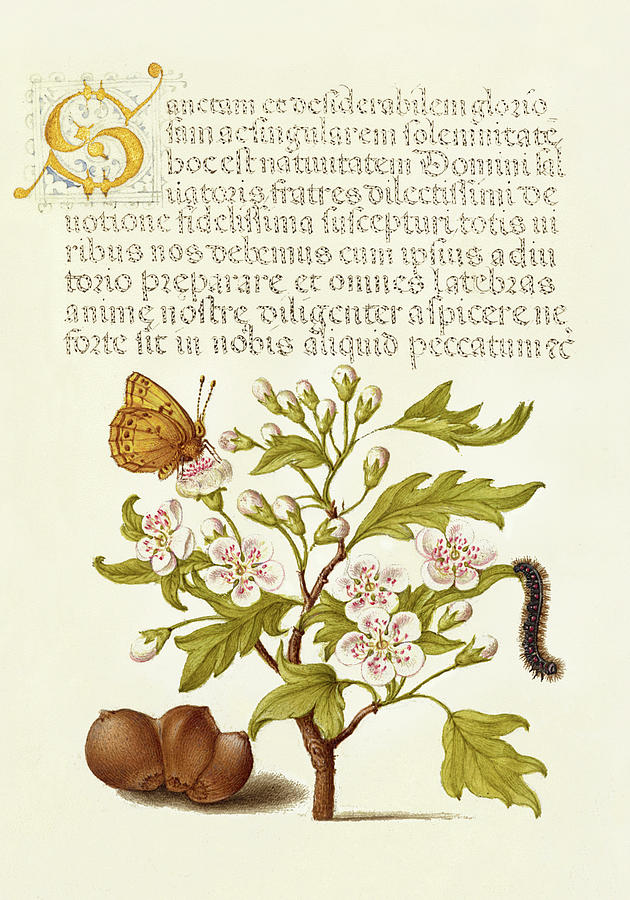 Sanctam et desiderabilem glorio
sam ac singularem solemnitatē,
hoc est natiuitatem Domini sal
uatoris fratres dilectissimi de
uotione fidelissima suscepturi totis ui
ribus nos debemus cum ipsius adiu
torio preparare et omnes latebras
animę nostrę diligenter aspicere ne
forte sit in nobis aliquid peccatum &c